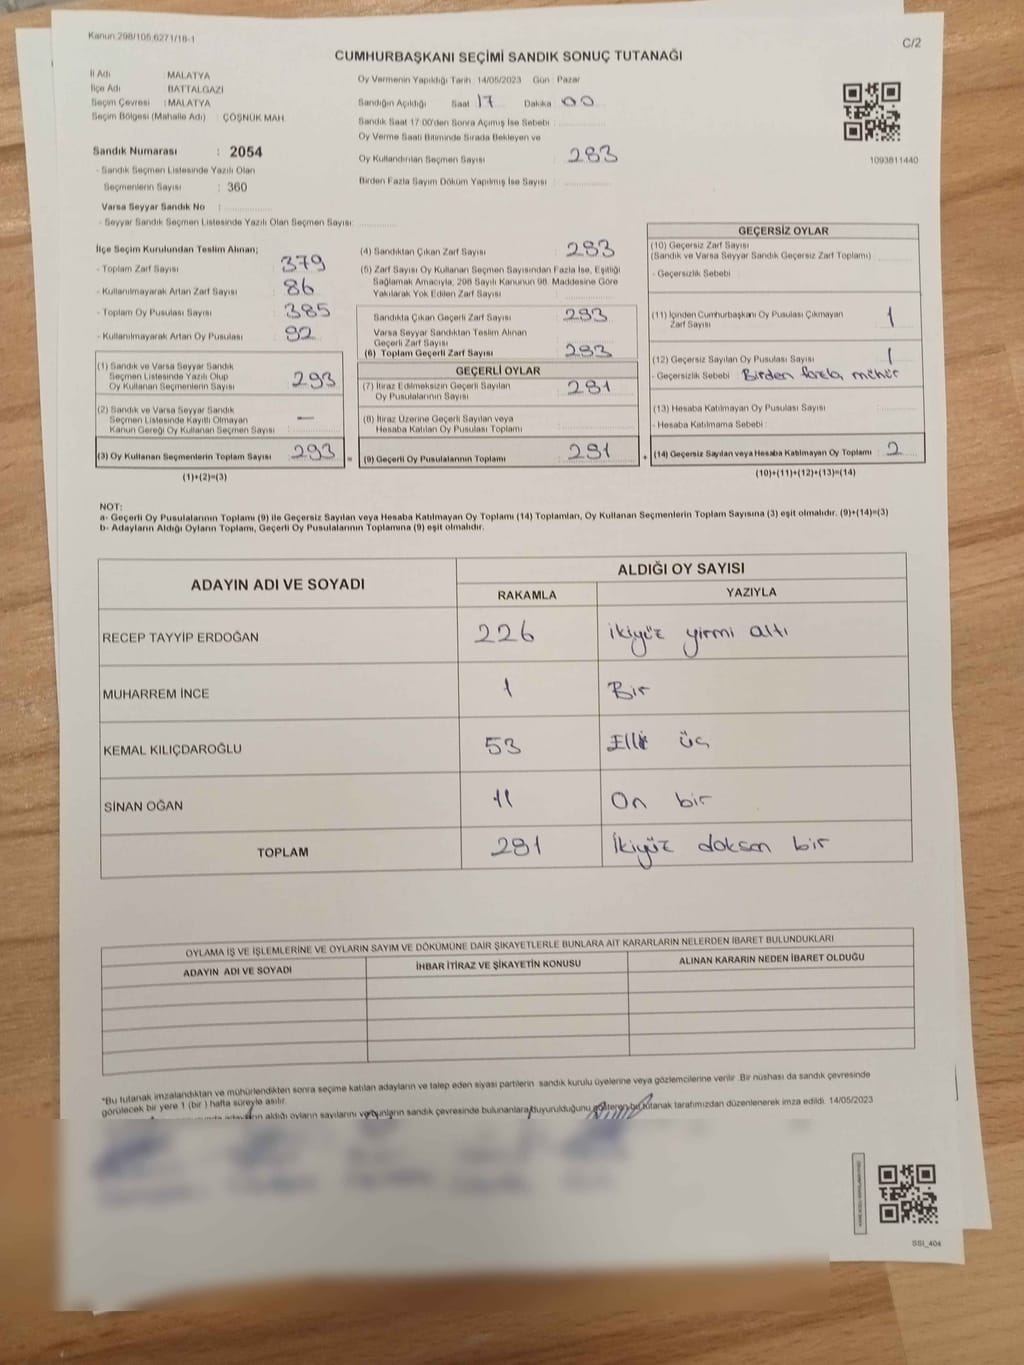 Kanun:298/105;6271/18-1
C/2
CUMHURBAŞKANI SEÇİMİ SANDIK SONUÇ TUTANAĞI
İl Adı : MALATYA
İlçe Adı BATTALGAZI
Seçim Çevresi : MALATYA
Seçim Bölgesi (Mahalle Adı) : ÇÖŞNÜK MAH.
Sandık Numarası : 2054
- Sandık Seçmen Listesinde Yazılı Olan
Seçmenlerin Sayısı : 360
Varsa Seyyar Sandık No :
- Seyyar Sandık Seçmen Listesinde Yazılı Olan Seçmen Sayısı:
Oy Vermenin Yapıldığı Tarih : 14/05/2023 Gün : Pazar
Sandığın Açıldığı Saat 17 Dakika 00
Sandık Saat 17:00'den Sonra Açımış İse Sebebi :
Oy Verme Saati Bitiminde Sırada Bekleyen ve
Oy Kullandırılan Seçmen Sayısı 293
Birden Fazla Sayım Döküm Yapılmış İse Sayısı :
1093811440
İlçe Seçim Kurulundan Teslim Alınan;
- Toplam Zarf Sayısı 379
- Kullanılmayarak Artan Zarf Sayısı 86
- Toplam Oy Pusulası Sayısı 385
- Kullanılmayarak Artan Oy Pusulası 92
(1) Sandık ve Varsa Seyyar Sandık
Seçmen Listesinde Yazılı Olup
Oy Kullanan Seçmenlerin Sayısı 293
(2) Sandık ve Varsa Seyyar Sandık
Seçmen Listesinde Kayıtlı Olmayan
Kanun Gereği Oy Kullanan Seçmen Sayısı : —
(3) Oy Kullanan Seçmenlerin Toplam Sayısı : 293
(1)+(2)=(3)
(4) Sandıktan Çıkan Zarf Sayısı 293
(5) Zarf Sayısı Oy Kullanan Seçmen Sayısından Fazla İse, Eşitliği
Sağlamak Amacıyla, 298 Sayılı Kanunun 98. Maddesine Göre
Yakılarak Yok Edilen Zarf Sayısı
Sandıkta Çıkan Geçerli Zarf Sayısı 293
Varsa Seyyar Sandıktan Teslim Alınan
Geçerli Zarf Sayısı
(6) Toplam Geçerli Zarf Sayısı 293
GEÇERLİ OYLAR
(7) İtiraz Edilmeksizin Geçerli Sayılan
Oy Pusulalarının Sayısı 291
(8) İtiraz Üzerine Geçerli Sayılan veya
Hesaba Katılan Oy Pusulası Toplamı
= (9) Geçerli Oy Pusulalarının Toplamı 291
GEÇERSİZ OYLAR
(10) Geçersiz Zarf Sayısı
(Sandık ve Varsa Seyyar Sandık Geçersiz Zarf Toplamı)
- Geçersizlik Sebebi :
(11) İçinden Cumhurbaşkanı Oy Pusulası Çıkmayan
Zarf Sayısı 1
(12) Geçersiz Sayılan Oy Pusulası Sayısı 1
- Geçersizlik Sebebi : Birden fazla mühür
(13) Hesaba Katılmayan Oy Pusulası Sayısı
- Hesaba Katılmama Sebebi :
+ (14) Geçersiz Sayılan veya Hesaba Katılmayan Oy Toplamı 2
(10)+(11)+(12)+(13)=(14)
NOT:
a- Geçerli Oy Pusulalarının Toplamı (9) ile Geçersiz Sayılan veya Hesaba Katılmayan Oy Toplamı (14) Toplamları, Oy Kullanan Seçmenlerin Toplam Sayısına (3) eşit olmalıdır. (9)+(14)=(3)
b- Adayların Aldığı Oyların Toplamı, Geçerli Oy Pusulalarının Toplamına (9) eşit olmalıdır.
ADAYIN ADI VE SOYADI ALDIĞI OY SAYISI
RAKAMLA YAZIYLA
RECEP TAYYİP ERDOĞAN 226 ikiyüz yirmi altı
MUHARREM İNCE 1 Bir
KEMAL KILIÇDAROĞLU 53 Elli üç
SİNAN OĞAN 11 On bir
TOPLAM 291 İkiyüz doksan bir
OYLAMA İŞ VE İŞLEMLERİNE VE OYLARIN SAYIM VE DÖKÜMÜNE DAİR ŞİKAYETLERLE BUNLARA AİT KARARLARIN NELERDEN İBARET BULUNDUKLARI
ADAYIN ADI VE SOYADI İHBAR İTİRAZ VE ŞİKAYETİN KONUSU ALINAN KARARIN NEDEN İBARET OLDUĞU
*Bu tutanak imzalandıktan ve mühürlendikten sonra seçime katılan adayların ve talep eden siyasi partilerin sandık kurulu üyelerine veya gözlemcilerine verilir. Bir nüshası da sandık çevresinde
görülecek bir yere 1 (bir) hafta süreyle asılır.
adayların aldığı oyların sayılarını ve bunların sandık çevresinde bulunanlara duyurulduğunu gösteren bu tutanak tarafımızdan düzenlenerek imza edildi. 14/05/2023
SSI_404